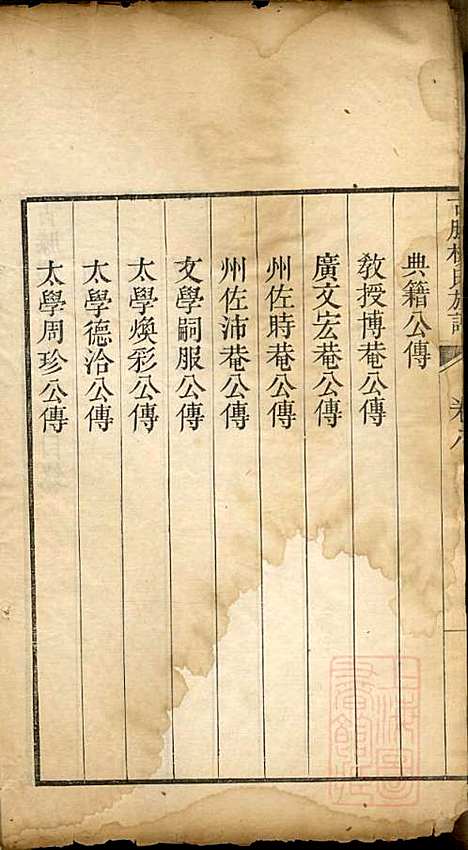 典籍公傳
教授博菴公傳
廣文宏菴公傳
州佐時菴公傳
州佐沛菴公傳
文學嗣服公傳
太學煥彩公傳
太學德洽公傳
太學周珍公傳